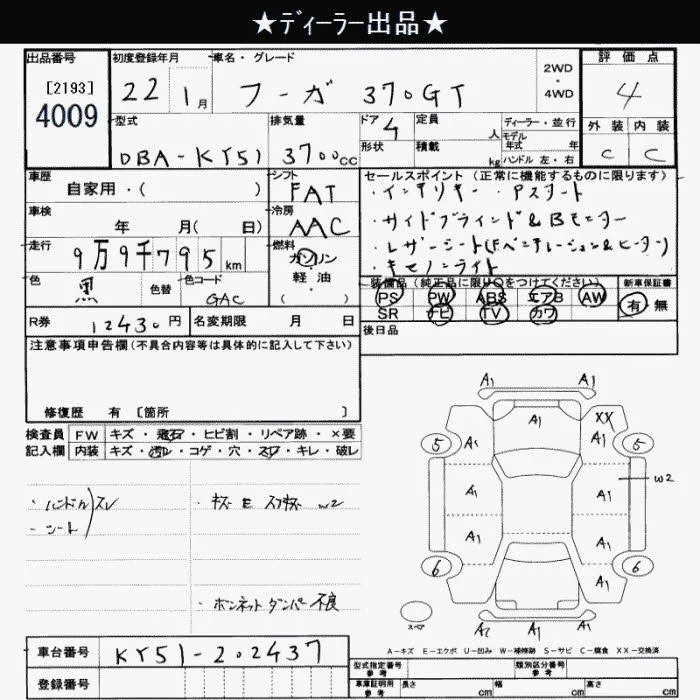 ★ディーラー出品★
出品番号
[2193]
4009
初度登録年月
22 1月
車名・グレード
フーガ 370GT
2WD
・
4WD
評価点
4
外装 内装
C C
型式
DBA-KY51
排気量
3700cc
ドア
4
形状
定員
人
積載
kg
ディーラー・並行
モデル
年式 年
ハンドル 左・右
車歴
自家用・( )
シフト
FAT
車検
年 月( 日)
冷房
AAC
走行
9万9千795km
燃料
ガソリン
・
軽・油
( )
色
黒
色替
色コード
GAC
セールスポイント (正常に機能するものに限ります)
・インテリキー ・Pスタート
・サイドブラインド&Bモニター
・レザーシート(Fベンチレーション&ヒーター)
・キセノンライト
装備品 (純正品に限り○をつけてください)
PS PW ABS エアB AW
SR ナビ TV カワ
新車保証書
有 無
R券
12430円
名変期限 月 日
後日品
注意事項申告欄(不具合内容等は具体的に記入して下さい)
修復歴 有 〔箇所 〕
検査員 FW キズ・飛石・ヒビ割・リペア跡・×要
記入欄 内装 キズ・汚レ・コゲ・穴・スレ・キレ・破レ
・ハンドル スレ
・シート
W2
・ボンネットダンパー不良
A1 A1
A1 XX
5 A1 A1 5
A1 A1 W2
A1 A1
6 A1 A1 6
スペア
A2 A1 A1
A-キズ E-エクボ U-凹み W-補修跡 S-サビ C-腐食 XX-交換済
車台番号
KY51-202437
登録番号
型式指定番号
参考
類別区分番号
参考
車庫証明用
参考
長さ cm 幅 cm 高さ cm